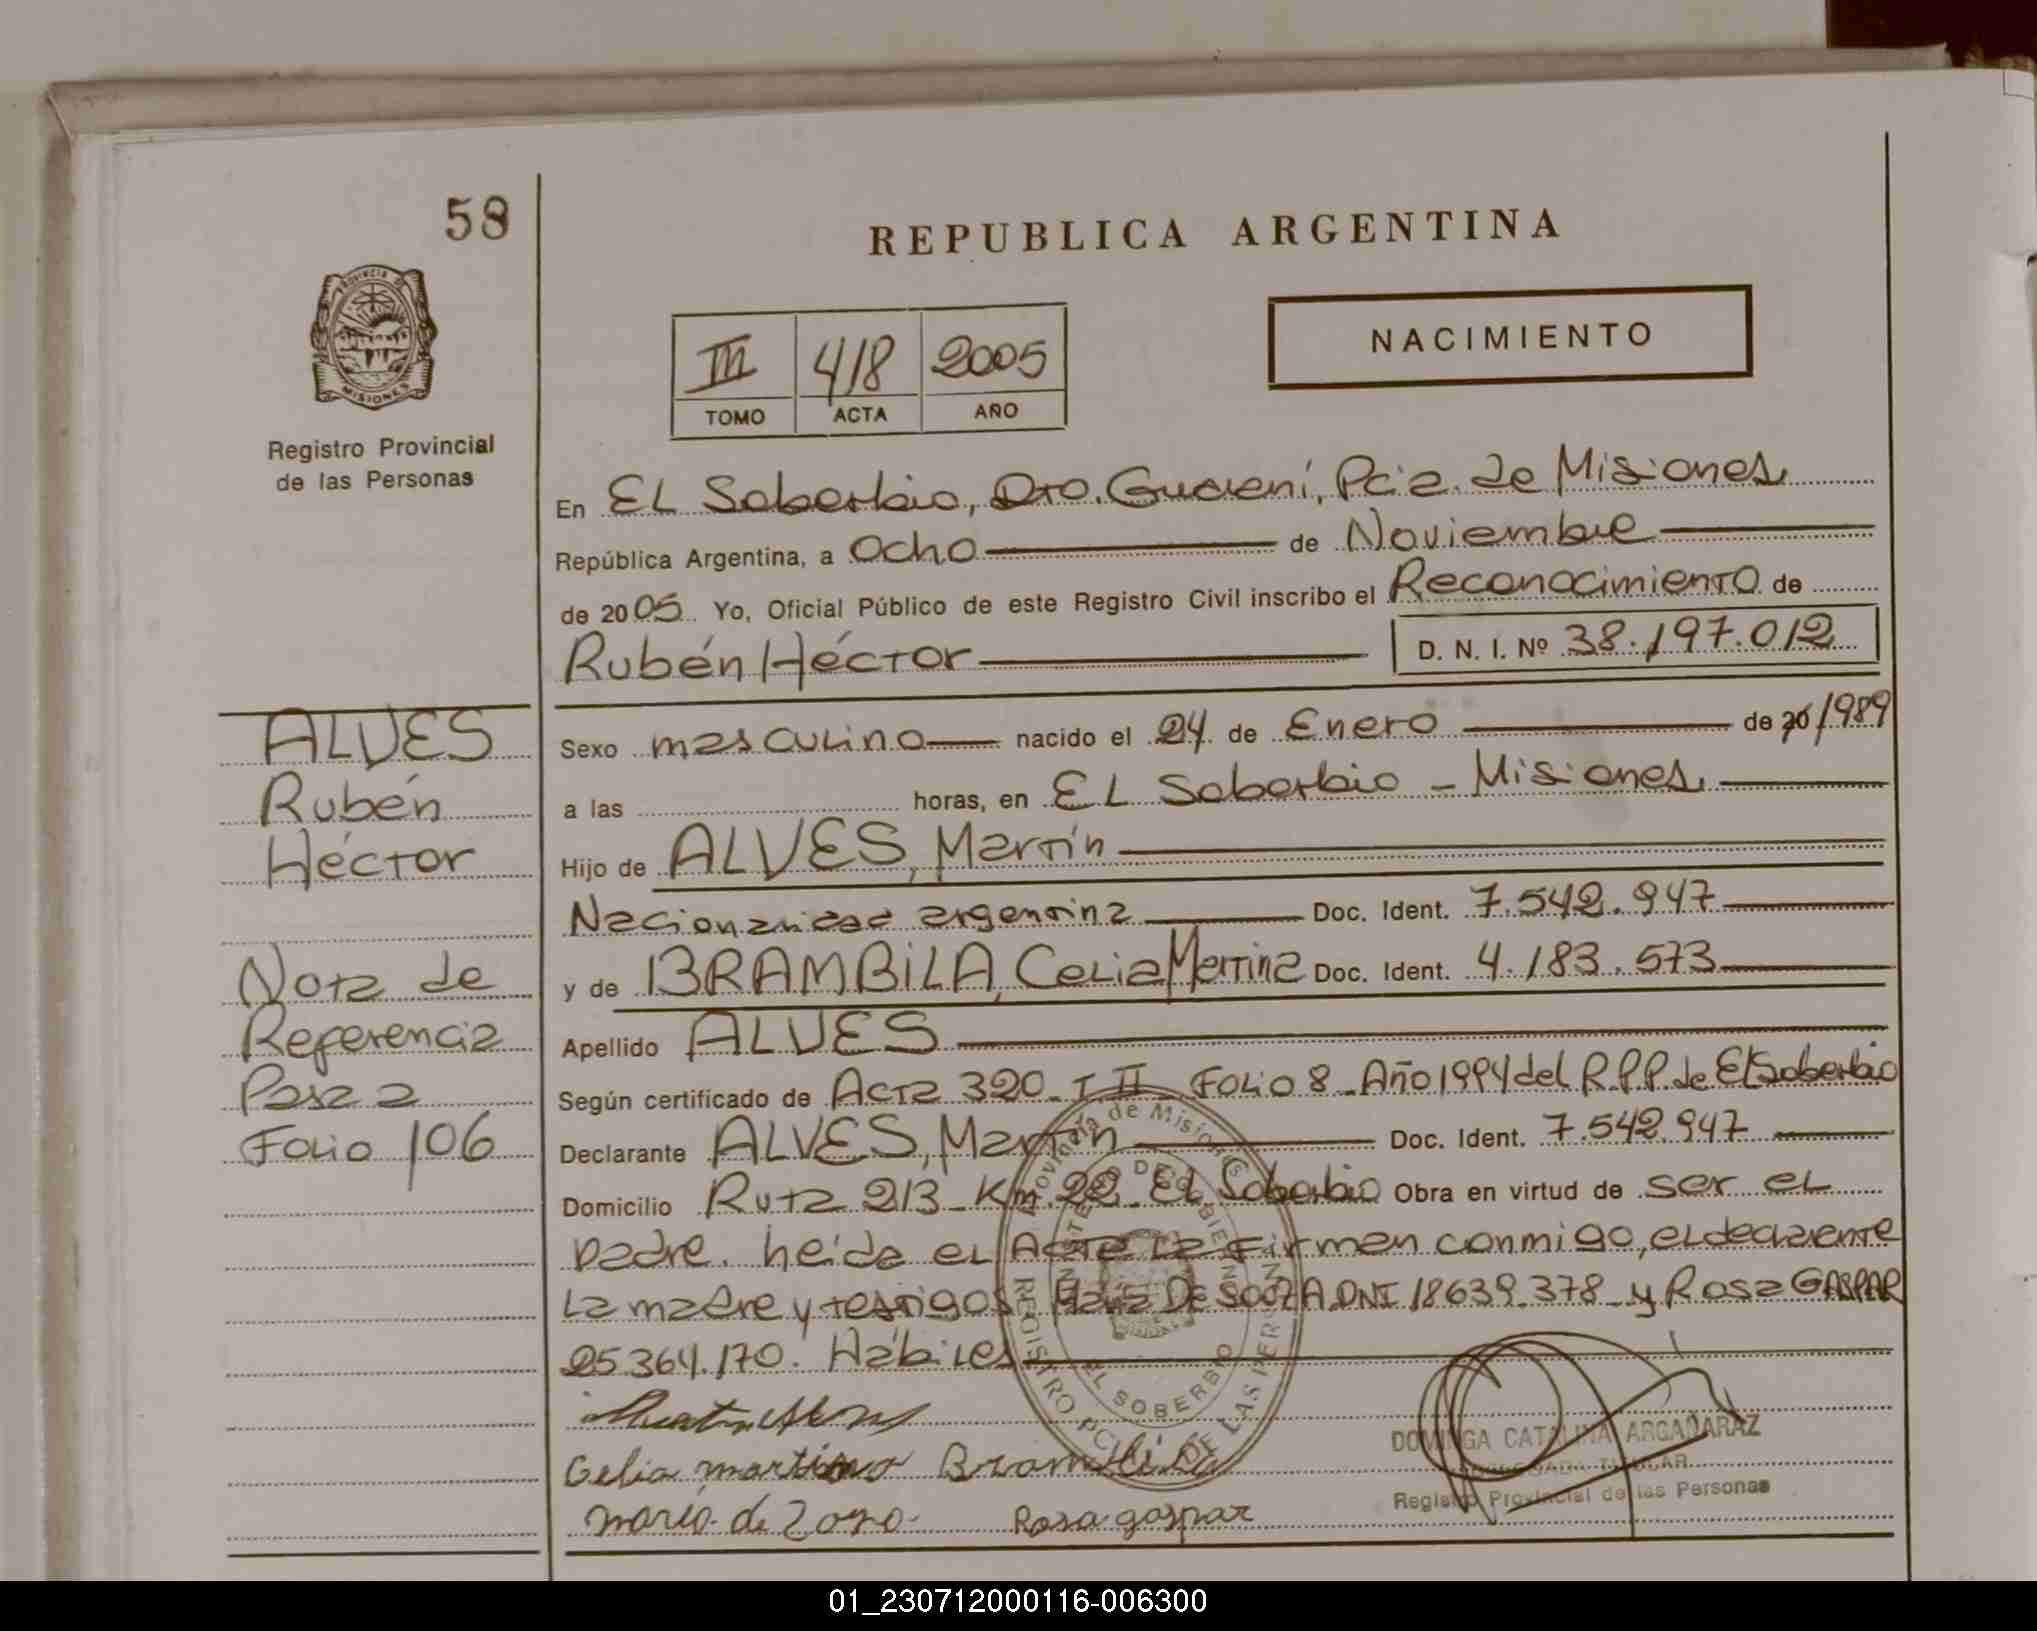 58
REPUBLICA ARGENTINA
PROVINCIA D
MISIONES
NACIMIENTO
III 418 2005
TOMO ACTA AÑO
Registro Provincial
de las Personas
En EL Soberbio, Dto. Guaraní, Pcia. de Misiones
República Argentina, a ocho de Noviembre
de 2005 Yo, Oficial Público de este Registro Civil inscribo el Reconocimiento de
Rubén Héctor D. N. I. Nº 38.197.012
ALVES
Rubén
Héctor
Nota de
Referencia
Pasa a
Folio 106
Sexo masculino nacido el 24 de Enero de 20/1989
a las horas, en EL Soberbio - Misiones
Hijo de ALVES, Martín
Nacionalidad argentina Doc. Ident. 7.542.947
y de BRAMBILA, Celia Martina Doc. Ident. 4.183.573
Apellido ALVES
Según certificado de Acta 320 - T II - Folio 8 - Año 1994 del R.P.P. de El Soberbio
Declarante ALVES, Martín Doc. Ident. 7.542.947
Domicilio Ruta 213 - Km. 22 - EL Soberbio Obra en virtud de ser el
padre. Leída el Acta la firman conmigo, el declarante
La madre y testigos De SOUZA DNI 18639.378 - y Rosa GASPAR
25364.170. Hábiles
Celia martina Brambila
Rosa gaspar
Provincia de Misiones
REGISTRO PCIAL. DE LAS PERSONAS
EL SOBERBIO
DOMINGA CATALINA ARGAÑARAZ
DELEGADA TITULAR
Registro Provincial de las Personas
01_230712000116-006300